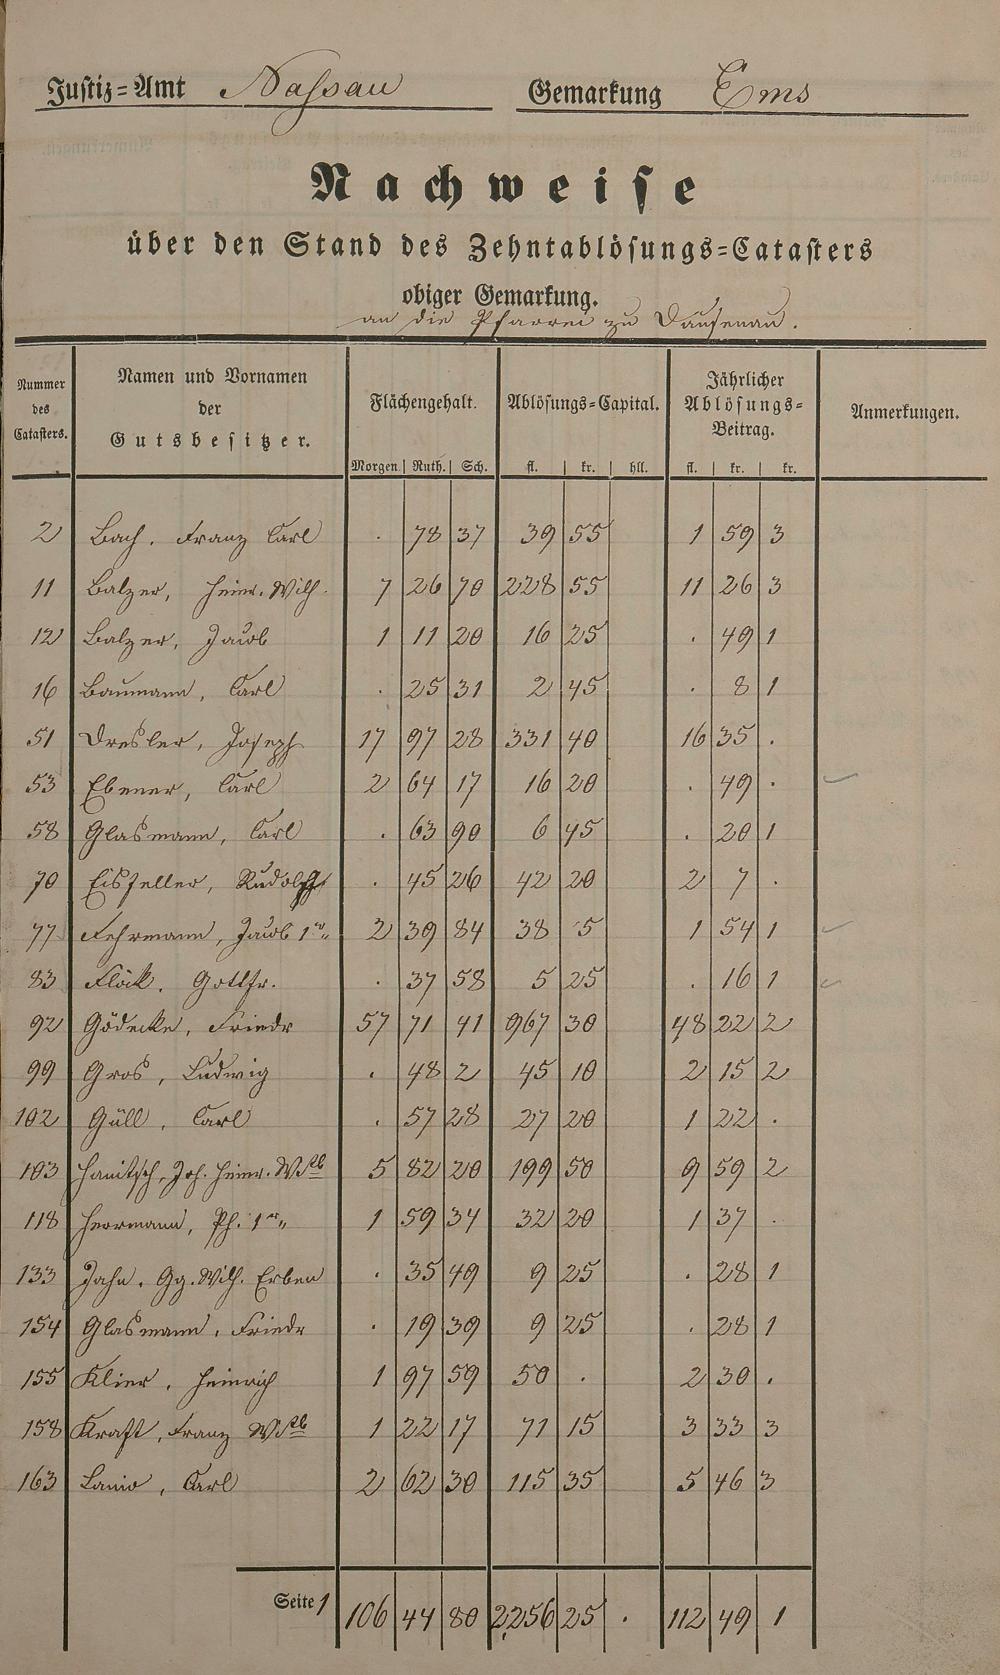 Justiz=Amt Nassau Gemarkung Ems
Nachweise
über den Stand des Zehntablösungs=Catasters
obiger Gemarkung.
an die Pfarrei zu Dausenau.
Nummer des Catasters. Namen und Vornamen der Gutsbesitzer. Flächengehalt. Ablösungs=Capital. Jährlicher Ablösungs=Beitrag. Anmerkungen.
Morgen. Ruth. Sch. fl. kr. hll. fl. kr. kr.
2 Bach, Franz Carl . 78 37 39 55 1 59 3
11 Balzer, Heinr. Wilh. 7 26 70 228 55 11 26 3
12 Balzer, Jacob 1 11 20 16 25 . 49 1
16 Baumann, Carl . 25 31 2 45 . 8 1
51 Dresler, Joseph 17 97 28 331 40 16 35 .
53 Ebener, Carl 2 64 17 16 20 . 49 .
58 Glasmann, Carl . 63 90 6 45 . 20 1
70 Eisfeller, Rudolph . 45 26 42 20 2 7 .
77 Fehrmann, Jacob 1r 2 39 84 38 5 1 54 1
83 Flöck, Gottfr. . 37 58 5 25 . 16 1
92 Gödecke, Friedr 57 71 41 967 30 48 22 2
99 Gros, Ludwig . 48 2 45 10 2 15 2
102 Güll, Carl . 57 28 27 20 1 22 .
103 Hanitsch, Joh. Heinr. Wtb 5 82 20 199 50 9 59 2
118 Herrmann, Ph. 1r 1 59 34 32 20 1 37 .
133 Jahn, Gg. Wilh. Erben . 35 49 9 25 . 28 1
154 Glasmann, Friedr . 19 39 9 25 . 28 1
155 Klier, Heinrich 1 97 59 50 . 2 30 .
158 Kraft, Franz Wtb 1 22 17 71 15 3 33 3
163 Lanio, Carl 2 62 30 115 35 5 46 3
Seite 1 106 44 80 2,256 25 . 112 49 1